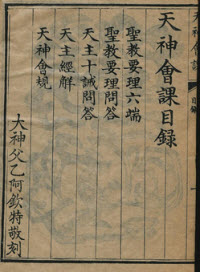 天神會課目錄
聖教要理六端
聖教要理問答
天主十誡問答
天主經解
天神會規
大神父乙阿欽特敬刻